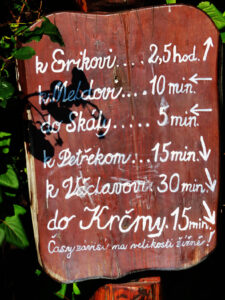 k Erikovi....2,5hod.↑
k Meldovi....10min.←
do Skály.....5min.←
k Petřekom...15min.↓
k Václavovi.30min.↓
do Krčmy.15min.↓
Časy závisí na velikosti žízně!